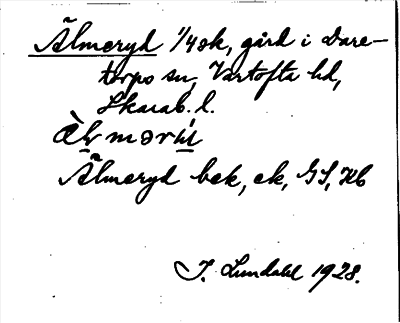 Älmeryd 1/4 ok, gård i Dare-
torps sn, Vartofta hd,
Skarab. l.
Älmeryd bek, ek, GS, Kb
I. Lundahl 1928.